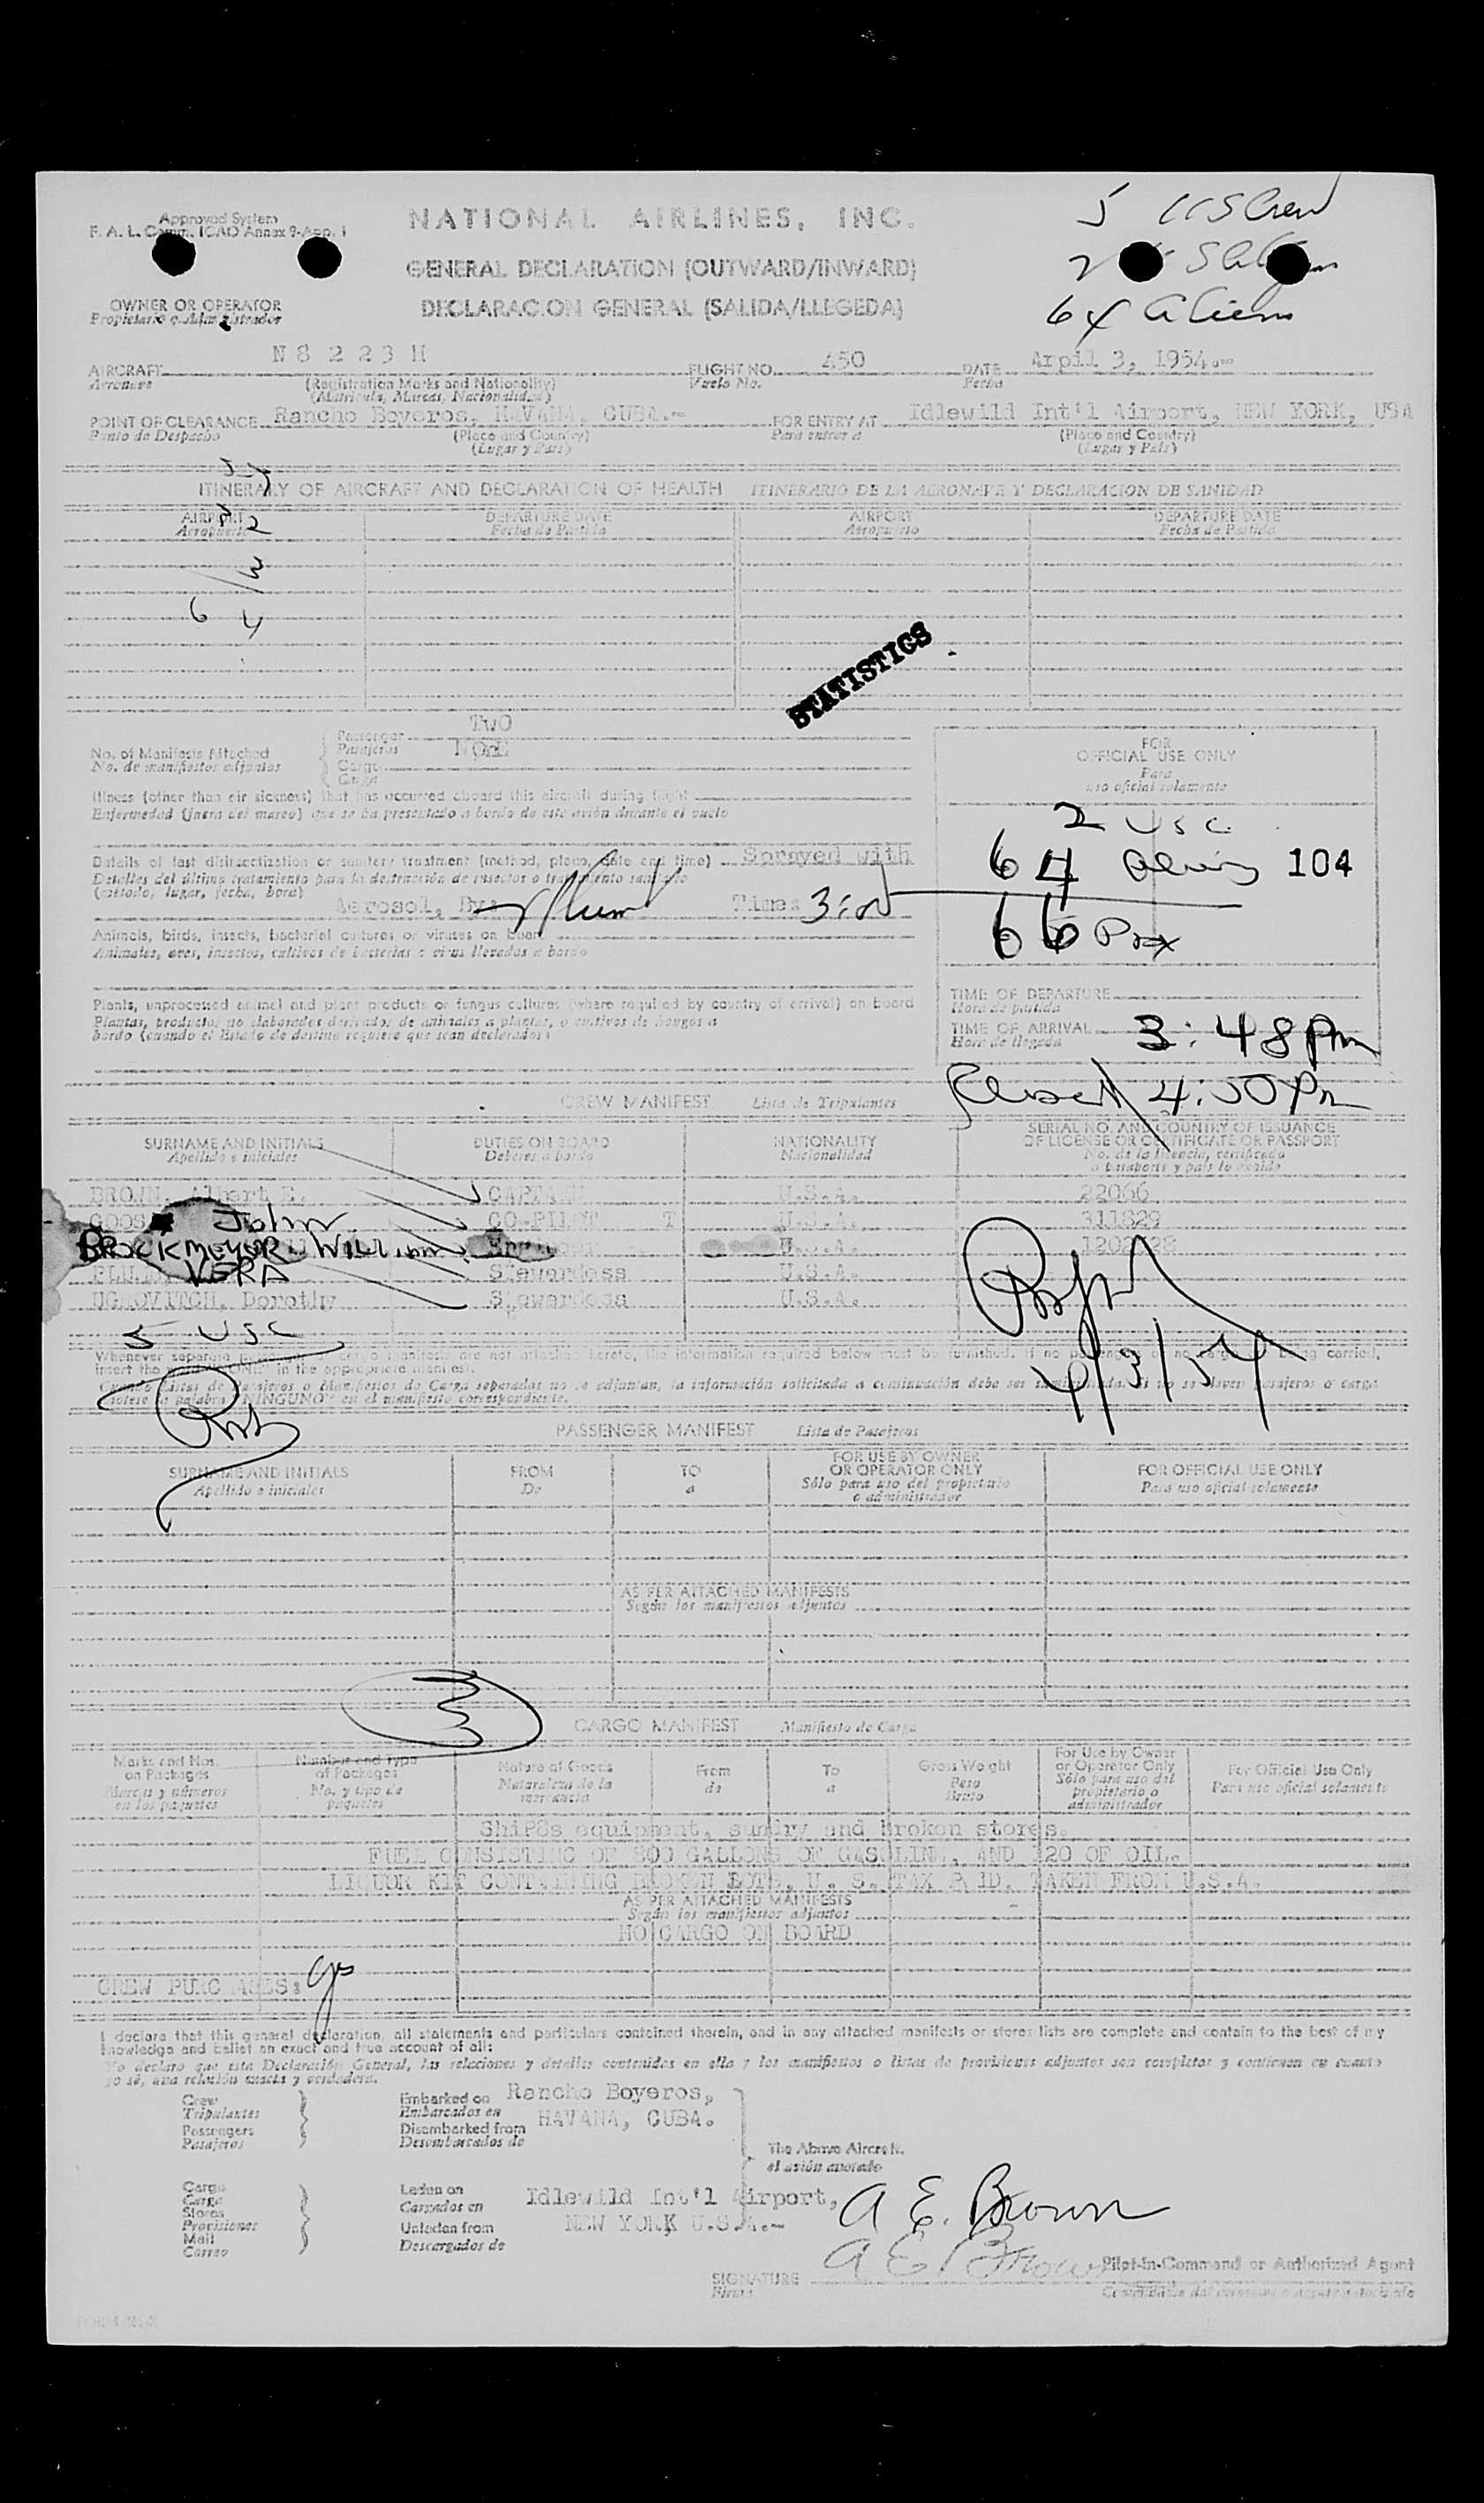 Approved System
F. A. L. Comm. ICAO Annex 9-App. 1
NATIONAL AIRLINES, INC.
GENERAL DECLARATION (OUTWARD/INWARD)
DECLARACION GENERAL (SALIDA/LLEGEDA)
5 US Crew
2
64 aliens
OWNER OR OPERATOR
Propietario o Administrador
AIRCRAFT N 8 2 2 3 H FLIGHT NO. 450 DATE Arpil 3, 1954.-
Aeronave (Registration Marks and Nationality) Vuelo No. Fecha
(Matricula, Marcas, Nacionalidad)
POINT OF CLEARANCE Rancho Boyeros, HAVANA, CUBA.- FOR ENTRY AT Idlewild Int'l Airport, NEW YORK, USA
Punto de Despacho (Place and Country) Para entrar a (Place and Country)
(Lugar y Pais) (Lugar y Pais)
ITINERARY OF AIRCRAFT AND DECLARATION OF HEALTH ITINERARIO DE LA AERONAVE Y DECLARACION DE SANIDAD
AIRPORT DEPARTURE DATE AIRPORT DEPARTURE DATE
Aeropuerto Fecha de Partida Aeropuerto Fecha de Partida
2
3
6 4
STATISTICS
No. of Manifests Attached Passenger TWO
No. de manifiestos adjuntos Pasajeros
Cargo
Carga
FOR
OFFICIAL USE ONLY
Para
uso oficial solamente
Illness (other than air sickness) that has occurred aboard this aircraft during flight
Enfermedad (fuera del mareo) que se ha presentado a bordo de este avión durante el vuelo
2 USC
Details of last disinsectization or sanitary treatment (method, place, date and time) Sprayed with
Detalles del último tratamiento para la destrucción de insectos o tratamiento sanitario
(método, lugar, fecha, hora)
64 Aliens 104
Aerosol, By: Time: 3:00
66 Pax
Animals, birds, insects, bacterial cultures or viruses on board
Animales, aves, insectos, cultivos de bacterias o virus llevados a bordo
Plants, unprocessed animal and plant products or fungus cultures (where required by country of arrival) on board
Plantas, productos no elaborados derivados de animales a plantas, o cultivos de hongos a
bordo (cuando el Estado de destino requiere que sean declarados)
TIME OF DEPARTURE
Hora de partida
TIME OF ARRIVAL 3:48 Pm
Hora de llegada
Released 4:50 Pm
CREW MANIFEST Lista de Tripulantes
SURNAME AND INITIALS DUTIES ON BOARD NATIONALITY SERIAL NO. AND COUNTRY OF ISSUANCE
OF LICENSE OR CERTIFICATE OR PASSPORT
Apellido e iniciales Deberes a bordo Nacionalidad No. de la licencia, certificado
o pasaporte y pais lo expido
BROWN, Albert E. CAPTAIN U.S.A. 22066
GOOS John CO-PILOT U.S.A. 311829
BROCKMEYER WILLIAM U.S.A.
VERA Stewardess U.S.A.
Dorothy Stewardess U.S.A.
5 USC
4/3/54
Whenever separate passenger or cargo manifests are not attached hereto, the information required below must be furnished. If no passengers or no cargo are being carried,
insert the word "NONE" in the appropriate manifest.
Cuando Listas de Pasajeros o Manifiestos de Carga separados no se adjuntan, la información solicitada a continuación debe ser suministrada. Si no se llevan pasajeros o carga
anótese la palabra "NINGUNO" en el manifiesto correspondiente.
PASSENGER MANIFEST Lista de Pasajeros
SURNAME AND INITIALS FROM TO FOR USE BY OWNER
OR OPERATOR ONLY FOR OFFICIAL USE ONLY
Apellido e iniciales De a Sólo para uso del propietario
o administrador Para uso oficial solamente
AS PER ATTACHED MANIFESTS
Según los manifiestos adjuntos
3
CARGO MANIFEST Manifiesto de Carga
Marks and Nos.
on Packages
Marcas y números
en los paquetes
Number and Type
of Packages
No. y tipo de
paquetes
Nature of Goods
Naturaleza de la
mercancia
From
de
To
a
Gross Weight
Peso
Bruto
For Use by Owner
or Operator Only
Sólo para uso del
propietario o
administrador
For Official Use Only
Para uso oficial solamente
ShiP8s equipment, sundry and broken stores.
FUEL CONSISTING OF 800 GALLONS OF GASOLINE, AND 120 OF OIL.
LIQUOR KIT CONTAINING BROKEN BOTS, U. S. TAX PAID, TAKEN FROM U.S.A.
AS PER ATTACHED MANIFESTS
Según los manifiestos adjuntos
NO CARGO ON BOARD
CREW PURCHASES:
I declare that this general declaration, all statements and particulars contained therein, and in any attached manifests or stores lists are complete and contain to the best of my
knowledge and belief an exact and true account of all:
Yo declaro que esta Declaración General, las relaciones y detalles contenidos en ella y los manifiestos o listas de provisiones adjuntos son completos y contienen en cuanto
yo sé, una relación exacta y verdadera.
Crew
Tripulantes
Passengers
Pasajeros
Embarked on Rancho Boyeros,
Embarcados en HAVANA, CUBA.
Disembarked from
Desembarcados de
The Above Aircraft.
el avión anotado
Cargo
Carga
Stores
Provisiones
Mail
Correo
Laden on Idlewild Int'l Airport,
Cargados en NEW YORK U.S.A.-
Unladen from
Descargados de
A E. Brown
A E Brown
SIGNATURE Pilot-in-Command or Authorized Agent
Firma